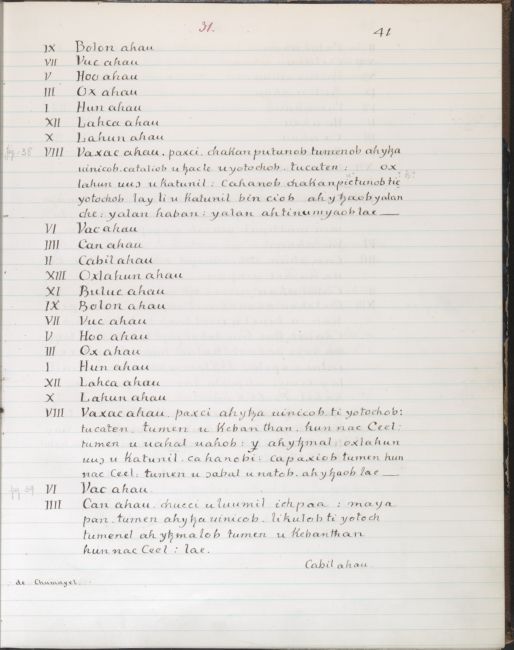 31.
41
IX Bolon ahau
VII Vuc ahau
V Hoo ahau
III Ox ahau
I Hun ahau
XII Lahca ahau
X Lahun ahau
pg. 38 VIII Vaxac ahau. paxci. chakan putunob tumenob ahytza
uinicob. cataliob u tzacle u yotochob. tucaten: ox
lahun uuɔ u katunil: cahanob. chakanputunob tie
yotochob. lay li u katunil bin ciob ah ytzaob yalan
che: yalan haban: yalan ahtinumyaob lae
VI Vac ahau
IIII Can ahau
II Cabil ahau
XIII Oxlahun ahau
XI Buluc ahau
IX Bolon ahau
VII Vuc ahau
V Hoo ahau
III Ox ahau
I Hun ahau
XII Lahca ahau
X Lahun ahau
VIII Vaxac ahau. paxci ahytza uinicob ti yotochob:
tucaten. tumen u Kebanthan. hun nac Ceel:
tumen u uahal uahob: y ahytzmal oxlahun
uuɔ u Katunil. cahanobi: ca paxiob tumen hun
nac Ceel: tumen u ɔabal u natob. ahytzaob lae
pg. 39 VI Vac ahau
IIII Can ahau. chucci u luumil ichpaa: maya
pan. tumen ahytza uinicob. likulob ti yotoch
tumenel ah ytzmalob tumen u Kebanthan
hun nac Ceel: lae.
Cabil ahau
de Chumayel.